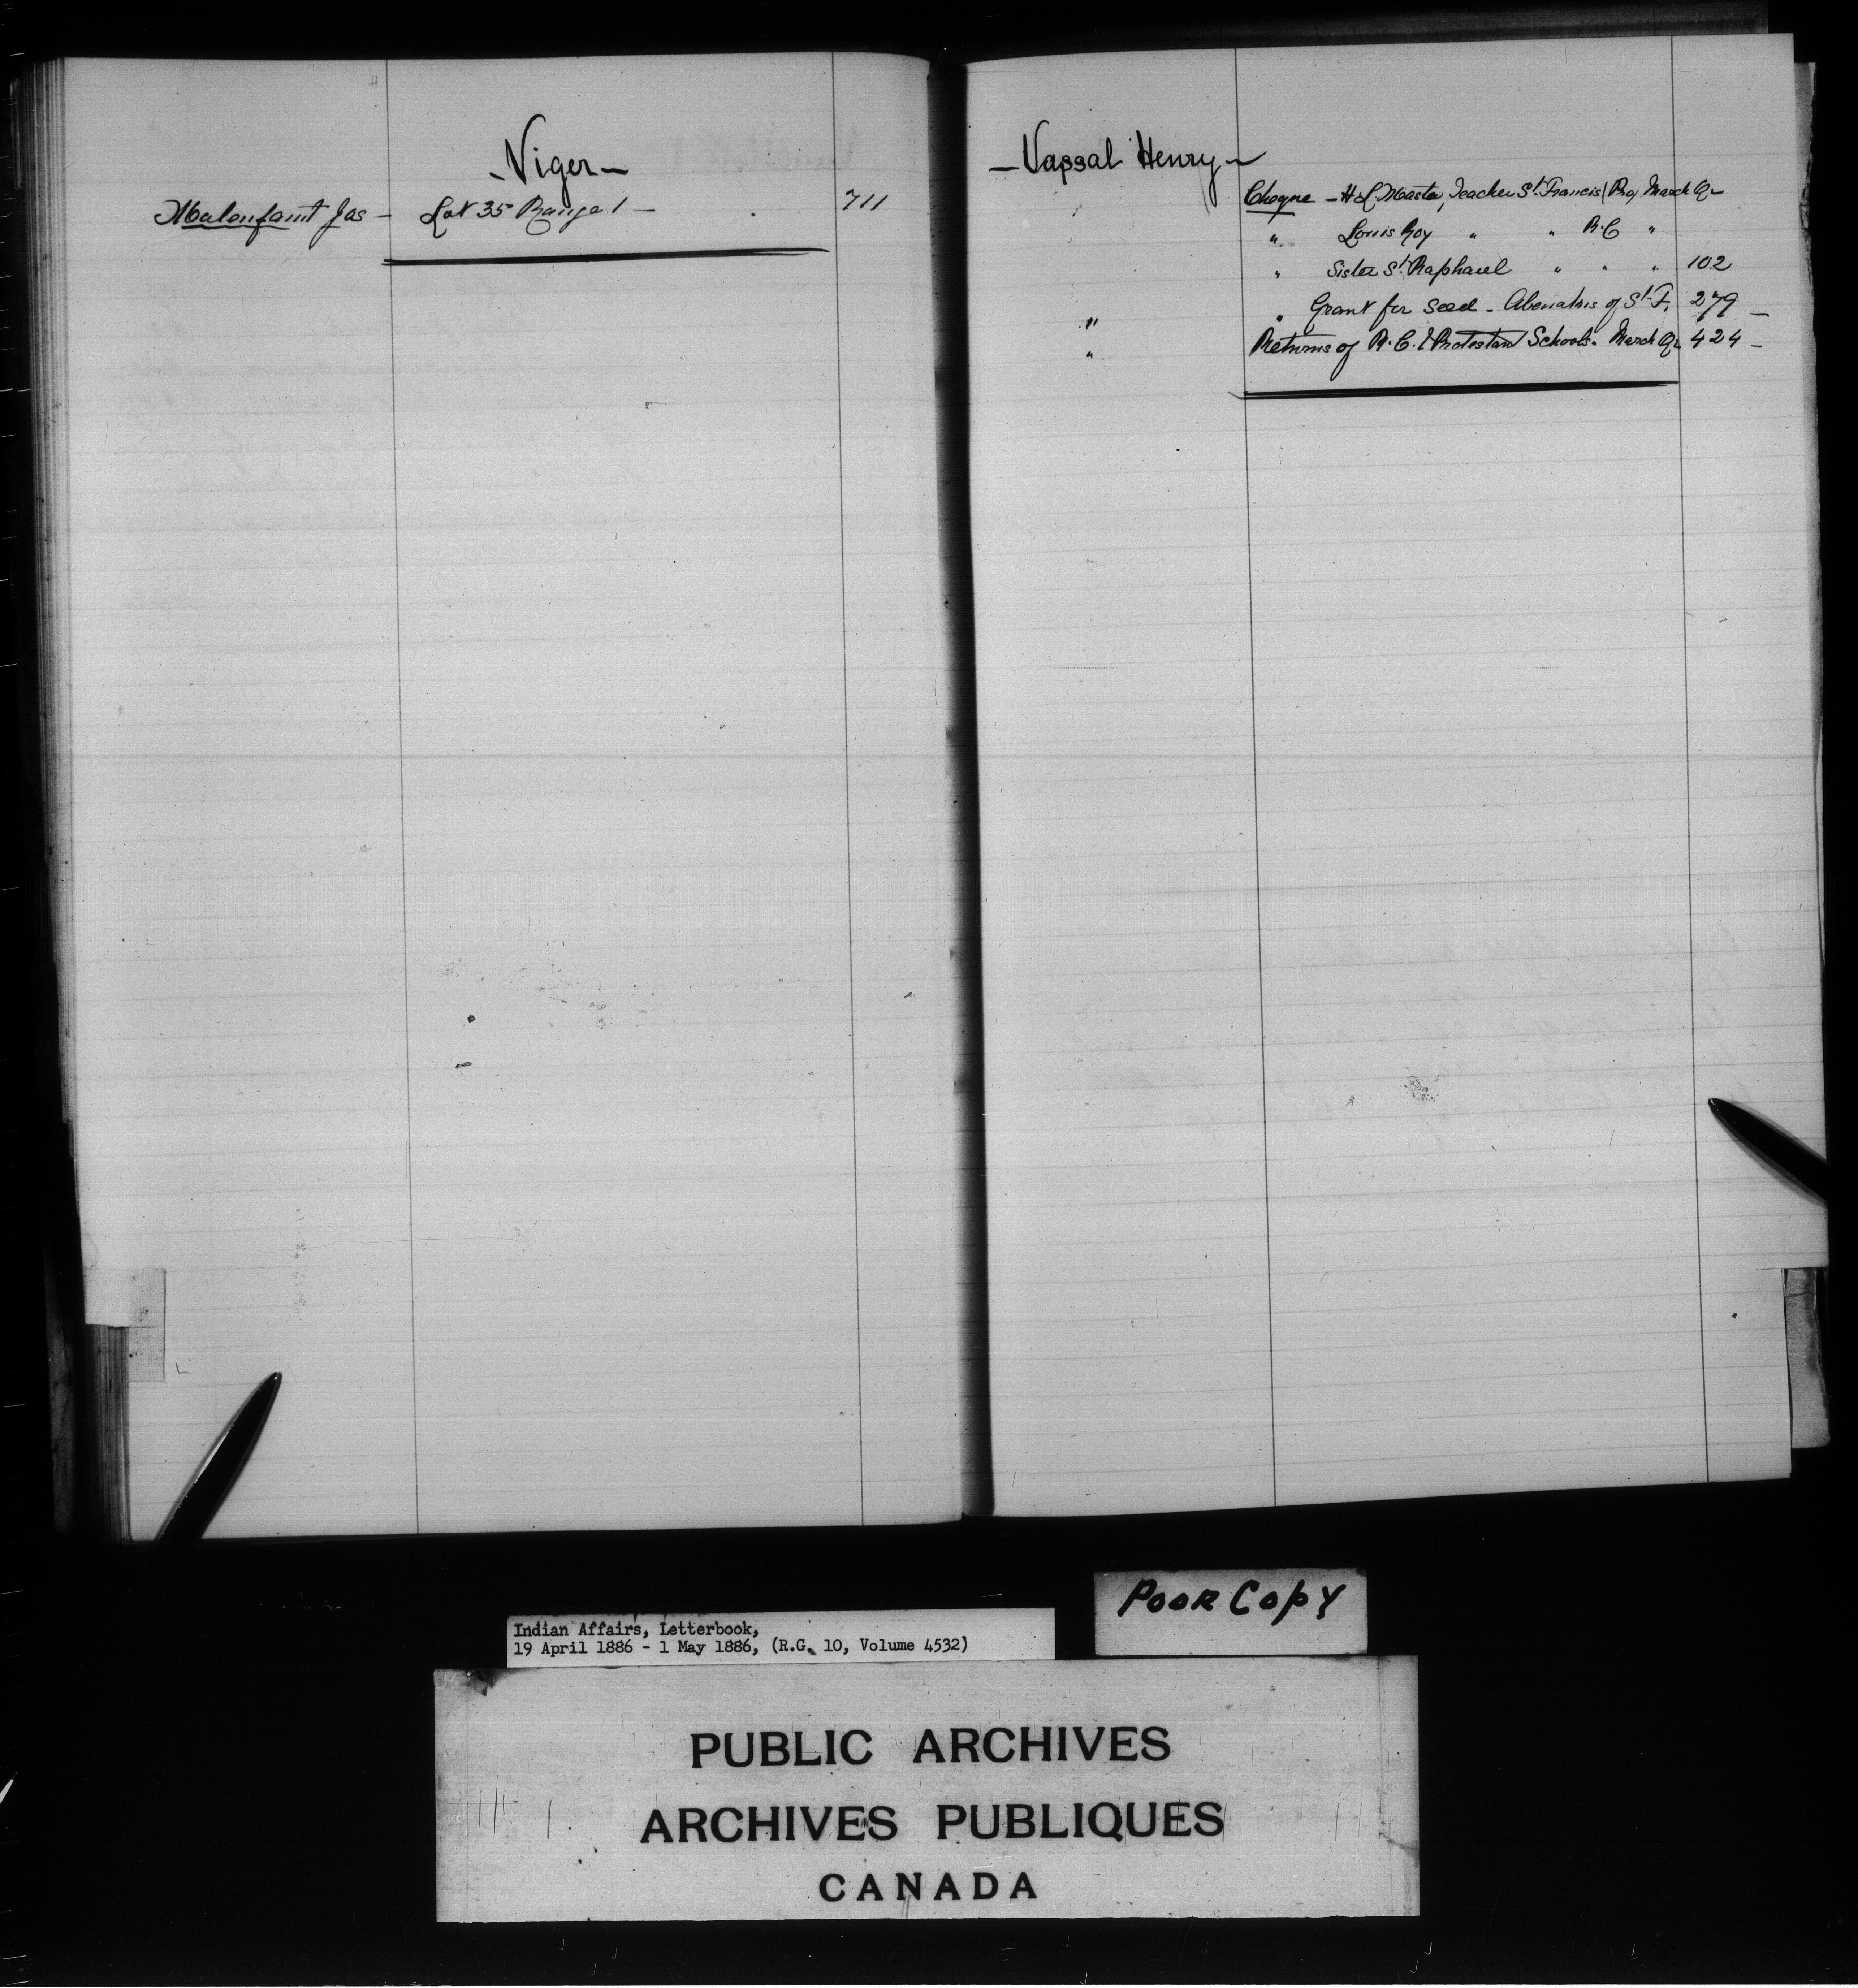 - Viger -
Malenfant Jas - Lot 35 Range 1 - 711
- Vassal Henry -
Cheque - H L Masta, Teacher St. Francis (Pro) March Qr
" Louis Roy " " R.C "
" Sister St. Raphael " " " 102
" " Grant for seed - Abenakis of St. F. 279 -
" Returns of R.C. & Protestant Schools. March Qr 424 -
POOR COPY
Indian Affairs, Letterbook,
19 April 1886 - 1 May 1886, (R.G. 10, Volume 4532)
PUBLIC ARCHIVES
ARCHIVES PUBLIQUES
CANADA